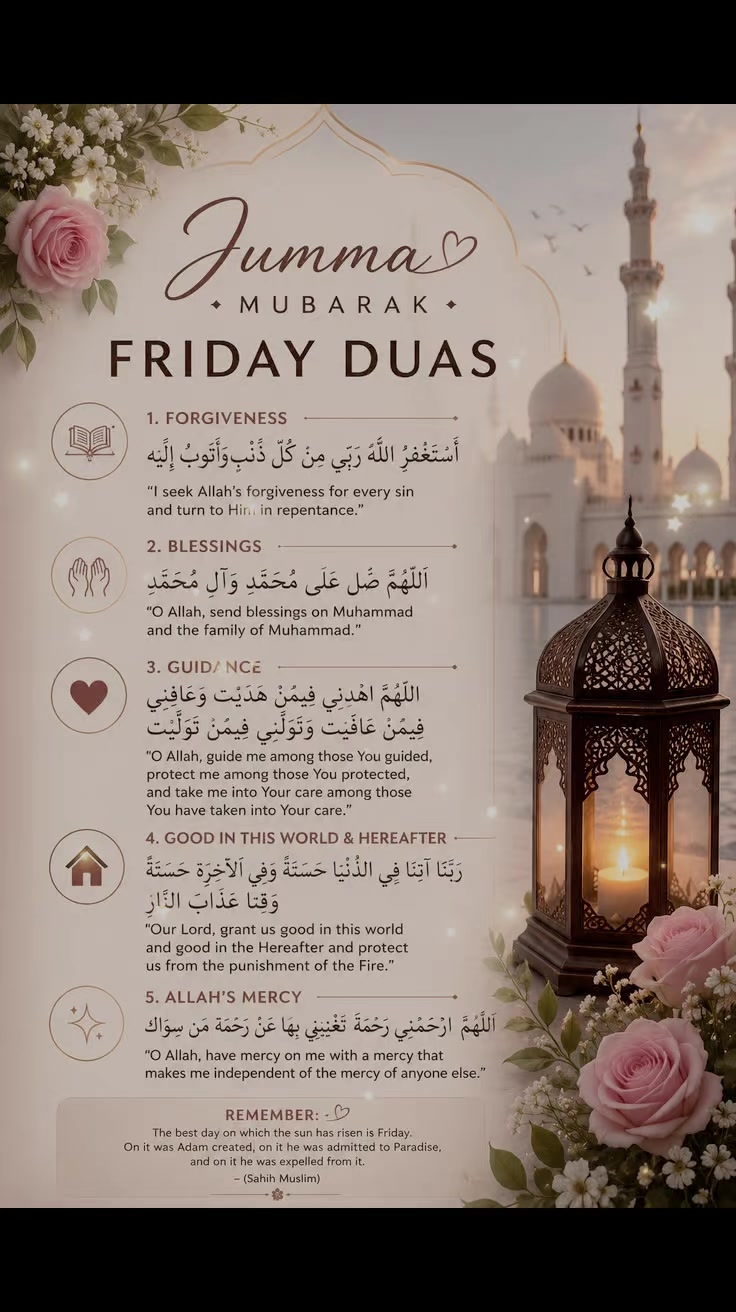 Jumma
MUBARAK
FRIDAY DUAS
1. FORGIVENESS
أَسْتَغْفِرُ اللَّهَ رَبِّي مِنْ كُلِّ ذَنْبٍ وَأَتُوبُ إِلَيْه
“I seek Allah’s forgiveness for every sin
and turn to Him in repentance.”
2. BLESSINGS
اَللّهُمَّ صَّل عَلَى مُحَمَّدٍ وَآلِ مُحَمَّدٍ
“O Allah, send blessings on Muhammad
and the family of Muhammad.”
3. GUIDANCE
اللّهُمَّ اهْدِنِي فِيمُنْ هَدَيْت وَعَافِنِي
فِيمُنْ عَافَيَت وَتَوَلَّنِي فِيمُنْ تَوَلَّيْت
“O Allah, guide me among those You guided,
protect me among those You protected,
and take me into Your care among those
You have taken into Your care.”
4. GOOD IN THIS WORLD & HEREAFTER
رَبَّنَا آتِنَا فِي الذُّنْيَا حَسَتَةً وَفِي اَلآخِرَة حَسَتَةً
وَقِتا عَذَابَ النَّارِ
“Our Lord, grant us good in this world
and good in the Hereafter and protect
us from the punishment of the Fire.”
5. ALLAH’S MERCY
اَللَّهُمَّ ارْحَمْنُي رَحْمَةَ تَغْنِيَنِي بِهَا عَنْ رَحْمَة مَن سِوَاك
“O Allah, have mercy on me with a mercy that
makes me independent of the mercy of anyone else.”
REMEMBER:
The best day on which the sun has risen is Friday.
On it was Adam created, on it he was admitted to Paradise,
and on it he was expelled from it.
– (Sahih Muslim)